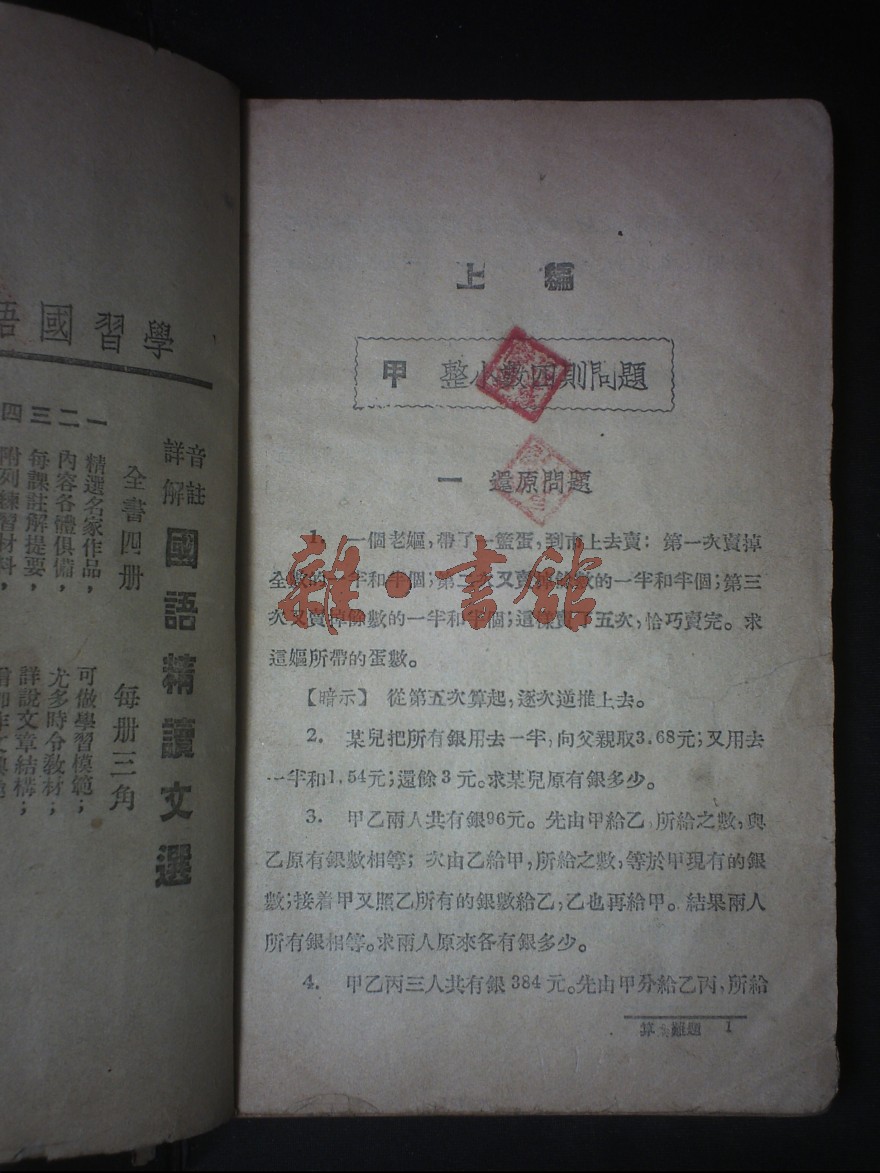 學習國語
一二三四
音註
詳解
國語精讀文選
全書四册
每册三角
精選名家作品，
內容各體俱備，
每課註解提要，
附列練習材料，
可做學習模範；
尤多時令教材；
詳說文章結構；
上編
甲 整小數四則問題
一 還原問題
1. 一個老嫗，帶了一籃蛋，到市上去賣：第一次賣掉
全數的一半和半個；第二次又賣掉餘數的一半和半個；第三
次又賣掉餘數的一半和半個；這樣賣了五次，恰巧賣完。求
這嫗所帶的蛋數。
【暗示】從第五次算起，逐次逆推上去。
2. 某兒把所有銀用去一半，向父親取3.68元；又用去
一半和1.54元；還餘3元。求某兒原有銀多少。
3. 甲乙兩人共有銀96元。先由甲給乙，所給之數，與
乙原有銀數相等；次由乙給甲，所給之數，等於甲現有的銀
數；接着甲又照乙所有的銀數給乙，乙也再給甲。結果兩人
所有銀相等。求兩人原來各有銀多少。
4. 甲乙丙三人共有銀384元。先由甲分給乙丙，所給
算 難題 1
雜·書館